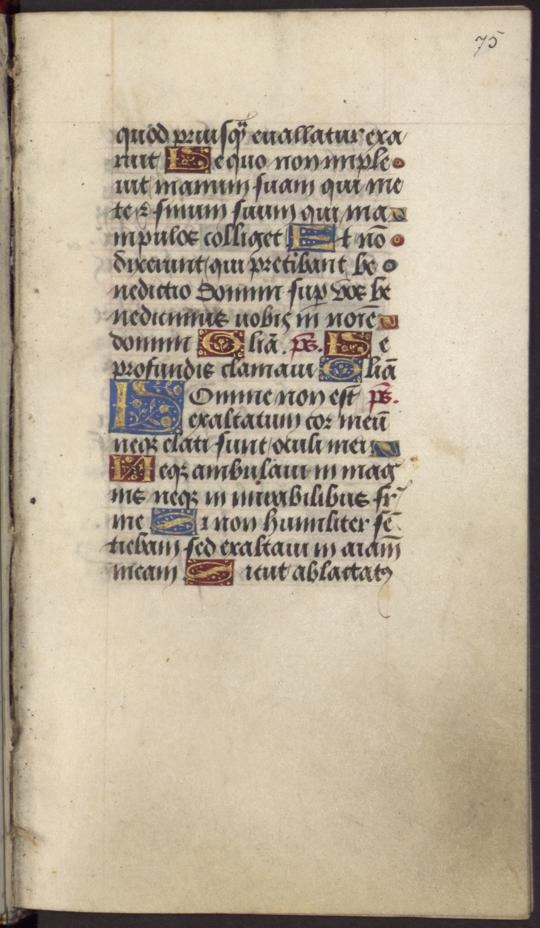 75
quod priusq̈ euallatur exa
ruit De quo non imple
uit manum suam qui me
tet ⁊ sinum suum qui ma
nipulos colliget Et nō
dixerunt qui pretibant be
nedictio domini sup vos be
nediximus uobis in noīe
domini Gliā. ps. De
profundis clamaui Gliā
DOmine non est ps.
exaltatum cor meū
neqꝫ elati sunt oculi mei
Neqꝫ ambulaui in mag
nis neqꝫ in mirabilibus sr̄
me Si non humiliter sē
tiebam sed exaltaui in aīam
meam Sicut ablactatꝰ